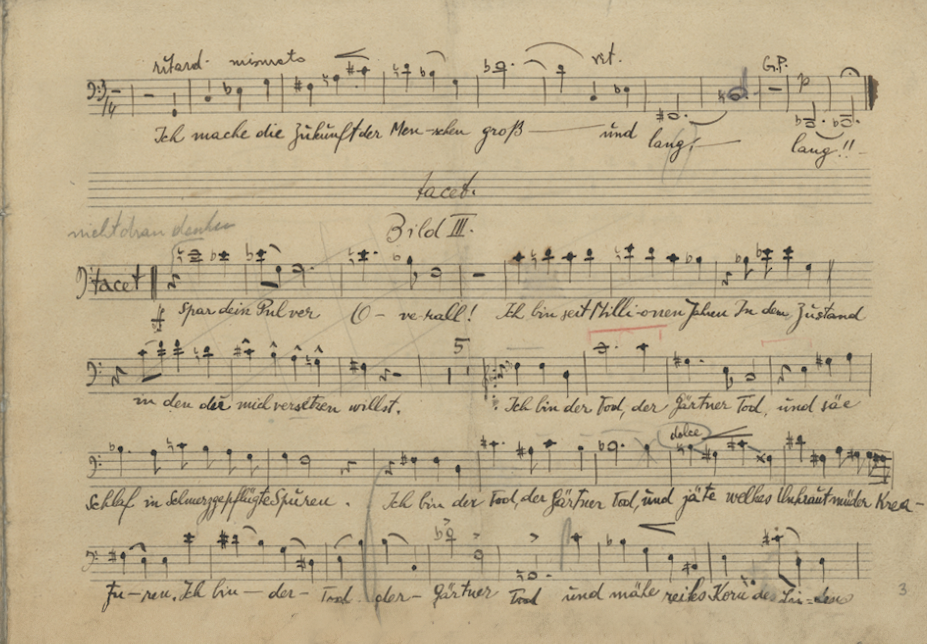 ritard. misurato rit. G.P. p
Ich mache die Zukunft der Men-schen groß — und lang, — lang!!
tacet.
nicht dran denken
Bild III.
tacet
f Spar dein Pulver O-ve-rall! Ich bin seit Milli-onen Jahren In dem Zustand
5
in den du mich versetzen willst. Ich bin der Tod, der Gärtner Tod, und säe
dolce
Schlaf in schmerzgepflügte Spuren. Ich bin der Tod, der Gärtner Tod, und jäte welkes Unkraut müder Krea-
tu-ren. Ich bin — der — Tod der — Gärtner Tod und mähe reifes Korn des
3